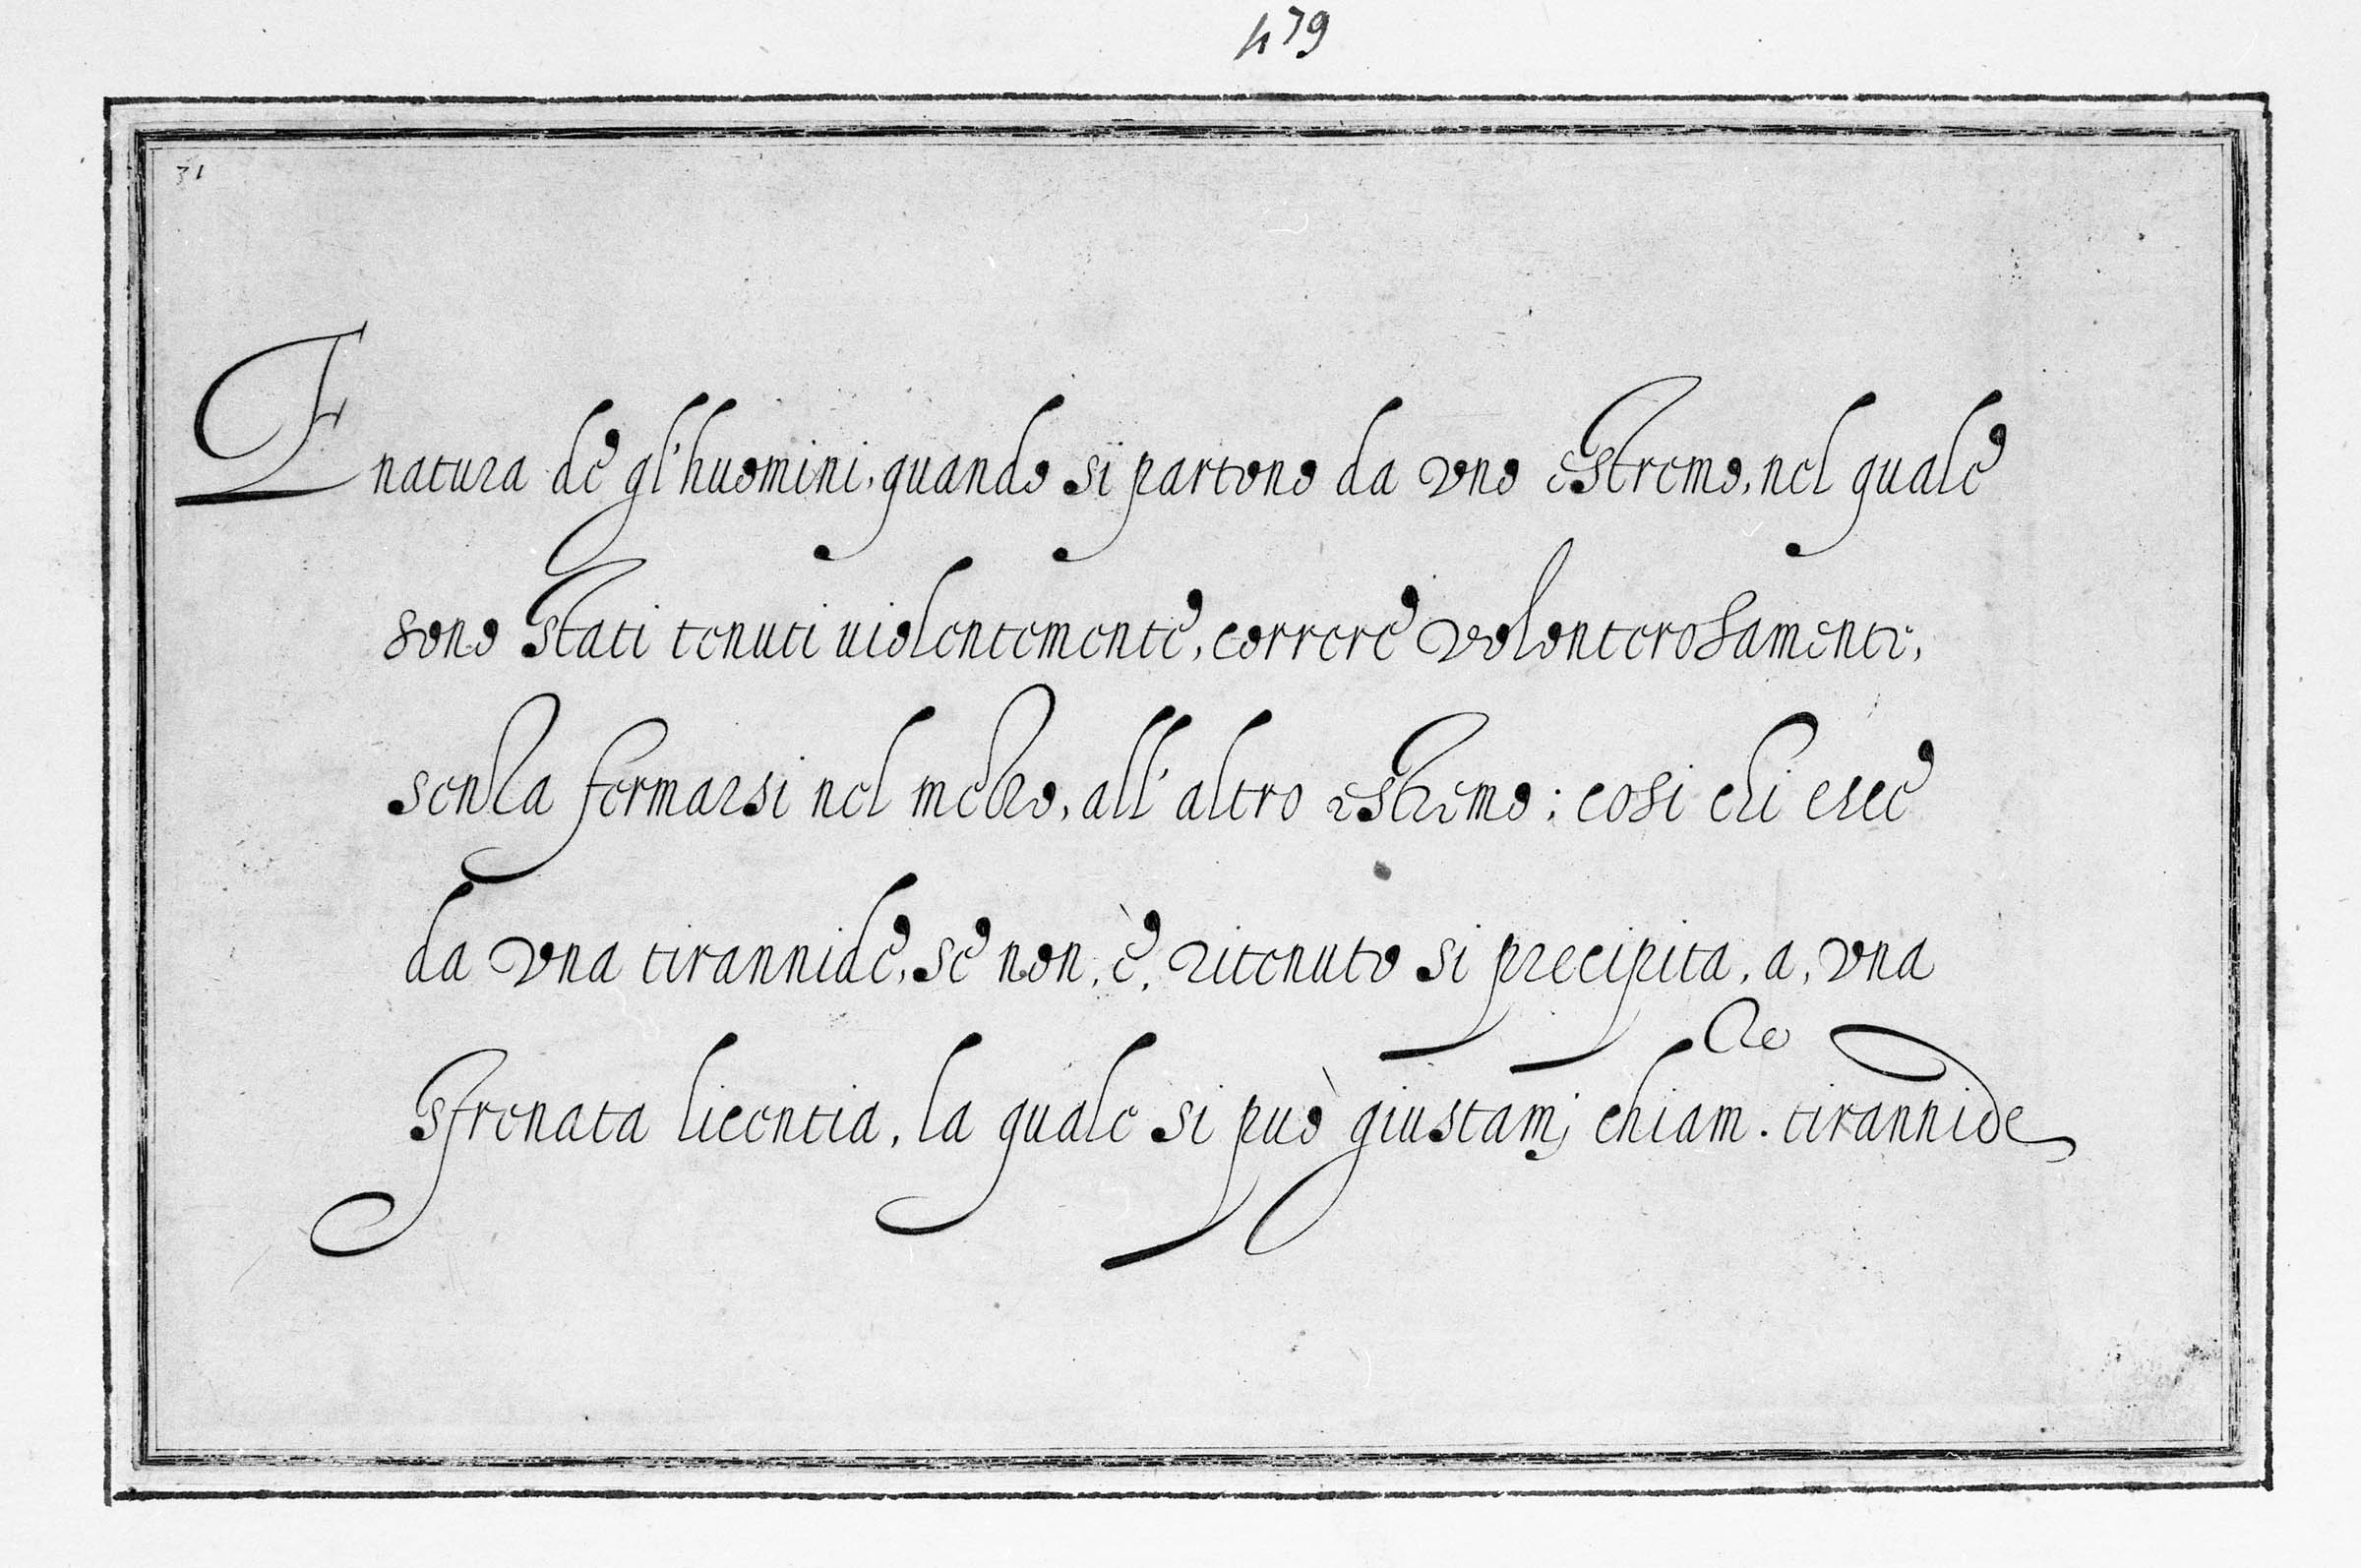 479
31
E natura de gl'huomini, quando si partono da vno estremo, nel quale
sono stati tenuti uiolentemente, correre volonterosamente,
senza fermarsi nel mezzo, all'altro estremo; cosi chi esce
da vna tirannide, se non, è, ritenuto si precipita, a, vna
sfrenata licentia, la quale si può giustam; chiam.re tirannide